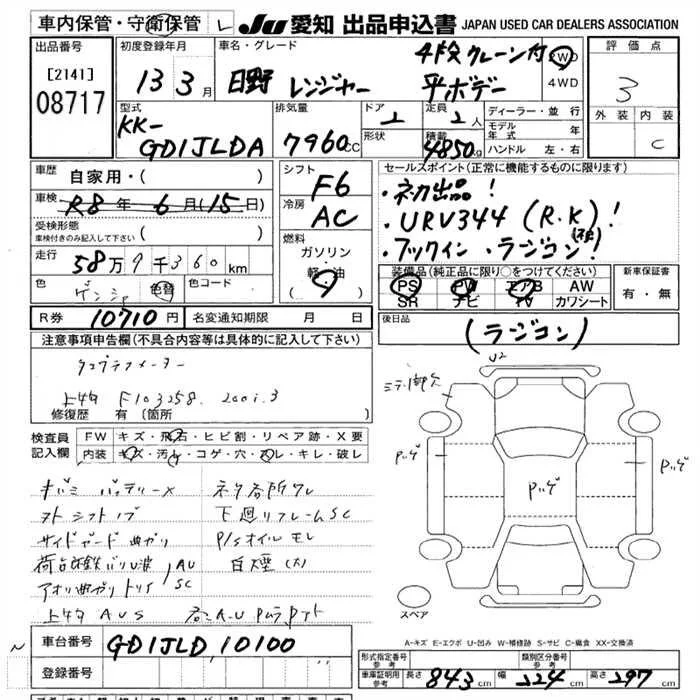 車内保管・守衛保管 レ JU 愛知 出品申込書 JAPAN USED CAR DEALERS ASSOCIATION
出品番号
[2141]
08717
初度登録年月
13 3月
車名・グレード
日野 レンジャー
4段クレーン付
平ボデー
2WD
4WD
評価点
3
外装 内装
C
型式
KK-
GD1JLDA
排気量
7960cc
ドア
2
形状
定員
2人
積載
4850kg
ディーラー・並行
モデル年式 年
ハンドル 左・右
車歴 自家用・( )
車検 R8年 6月(15日)
受検形態
車検付きのみ記入して下さい
走行 58万9千360km
色 色替 色コード
シフト
F6
冷房
AC
燃料
ガソリン
軽・油
( )
セールスポイント(正常に機能するものに限ります)
・初出品!
・URV344 (R.K)!
・フックイン ・ラジコン!
装備品(純正品に限り○をつけてください)
PS PW エアB AW
SR ナビ TV カワシート
新車保証書
有・無
R券 10710円 名変通知期限 月 日
後日品
(ラジコン)
注意事項申告欄(不具合内容等は具体的に記入して下さい)
タコグラフメーター
上物 F103258. 2001.3
修復歴 有 [箇所
検査員
記入欄
FW キズ・飛石・ヒビ割・リペア跡・X要
内装 キズ・汚レ・コゲ・穴・スレ・キレ・破レ
キバミ バッテリーX
ストシフトノブ
サイドガード曲がり
アオリ曲がり
上物 AUS
AU
SC
下廻リフレームSC
P/Sオイルモレ
白煙(大)
U2
スペア
A-キズ E-エクボ U-凹み W-補修跡 S-サビ C-腐食 XX-交換済
車台番号 GD1JLD 10100
登録番号
型式指定番号
参考
類別区分番号
参考
車庫証明用
参考
長さ 843cm 幅 224cm 高さ 297cm